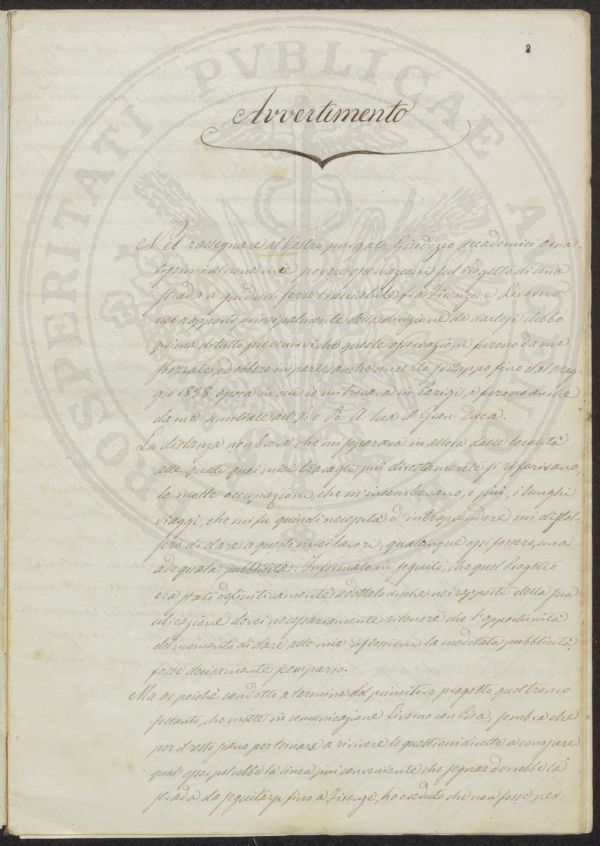 2
Avvertimento
Nel rassegnare al Vostro purgato Giudizio Accademici Orna-
tissimi alcune mie povere osservazioni sul Progetto di una
strada a guide di ferro eseguibile fra Firenze e Livorno
nei rapporti principalmente della direzione da darlesi debbo
prima di tutto prevenirvi che queste osservazioni furono da me
sbozzate, ed ebbero in parte anche un certo sviluppo fino dal Mag-
gio 1838 epoca in cui io mi trovava in Parigi, e furono anche
da me umiliate all' I. e R. A. Sua il Gran-Duca.
La distanza non breve che mi separava in allora dalle località
alle quali quei miei travagli più direttamente si riferivano,
le molte occupazioni, che m'incombevano, e più, i lunghi
viaggi, che mi fu quindi necessità d'intraprendere mi distol-
sero di dare a questi miei lavori, qualunque essi fossero, una
adequata pubblicità. Informato in seguito, che quel Progetto
era stato definitivamente adottato anche nei rapporti della sua
ubicazione dovei necessariamente ritenere che l'opportunità
del momento di dare alle mie riflessioni la meditata pubblicità
fosse decisamente scomparso.
Ma or poichè condotto a termine del primitivo progetto quel tronco
soltanto, che mette in comunicazione Livorno con Pisa, sembra che
per il resto siano per tornare a rivivere le questioni dirette a conoscere
qual' esser potrebbe la linea più conveniente che segnar dovrebbe la
strada da seguitarsi fino a Firenze, ho creduto che non fosse per
PROSPERITATI PVBLICAE AV